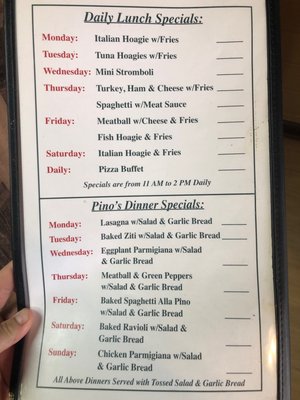 Daily Lunch Specials:
Monday: Italian Hoagie w/Fries
Tuesday: Tuna Hoagies w/Fries
Wednesday: Mini Stromboli
Thursday: Turkey, Ham & Cheese w/Fries
Spaghetti w/Meat Sauce
Friday: Meatball w/Cheese & Fries
Fish Hoagie & Fries
Saturday: Italian Hoagie & Fries
Daily: Pizza Buffet
Specials are from 11 AM to 2 PM Daily
Pino's Dinner Specials:
Monday: Lasagna w/Salad & Garlic Bread
Tuesday: Baked Ziti w/Salad & Garlic Bread
Wednesday: Eggplant Parmigiana w/Salad
& Garlic Bread
Thursday: Meatball & Green Peppers
w/Salad & Garlic Bread
Friday: Baked Spaghetti Alla Pino
w/Salad & Garlic Bread
Saturday: Baked Ravioli w/Salad &
Garlic Bread
Sunday: Chicken Parmigiana w/Salad
& Garlic Bread
All Above Dinners Served with Tossed Salad & Garlic Bread